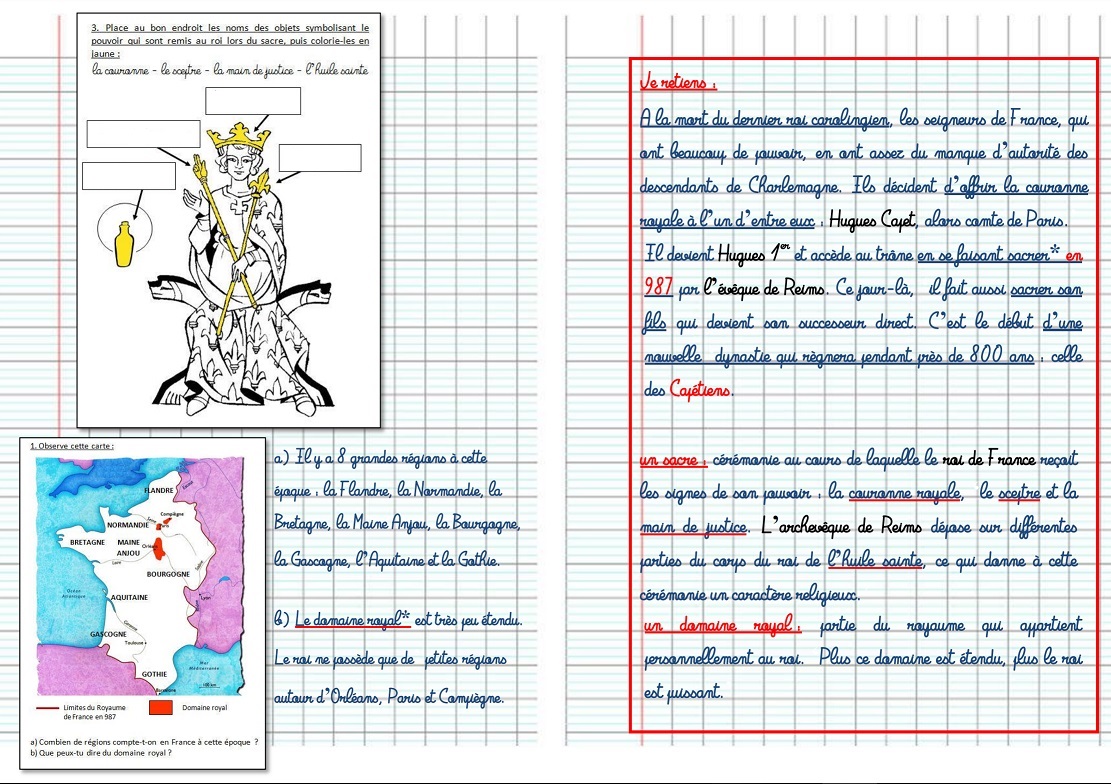 3. Place au bon endroit les noms des objets symbolisant le
pouvoir qui sont remis au roi lors du sacre, puis colorie-les en
jaune :
la couronne - le sceptre - la main de justice - l'huile sainte
1. Observe cette carte :
FLANDRE
Escaut
Compiègne
NORMANDIE
Seine
Paris
BRETAGNE
MAINE
ANJOU
Orléans
Loire
Saône
BOURGOGNE
Océan
Atlantique
Lyon
AQUITAINE
Garonne
GASCOGNE
Toulouse
Mer
Méditerranée
GOTHIE
Barcelone
100 km
Limites du Royaume
de France en 987
Domaine royal
a) Combien de régions compte-t-on en France à cette époque ?
b) Que peux-tu dire du domaine royal ?
a) Il y a 8 grandes régions à cette
époque : la Flandre, la Normandie, la
Bretagne, la Maine Anjou, la Bourgogne,
la Gascogne, l'Aquitaine et la Gothie.
b) Le domaine royal* est très peu étendu.
Le roi ne possède que de petites régions
autour d'Orléans, Paris et Compiègne.
Je retiens :
A la mort du dernier roi carolingien, les seigneurs de France, qui
ont beaucoup de pouvoir, en ont assez du manque d'autorité des
descendants de Charlemagne. Ils décident d'offrir la couronne
royale à l'un d'entre eux : Hugues Capet, alors comte de Paris.
Il devient Hugues 1er et accède au trône en se faisant sacrer* en
987 par l'évêque de Reims. Ce jour-là, il fait aussi sacrer son
fils qui devient son successeur direct. C'est le début d'une
nouvelle dynastie qui règnera pendant près de 800 ans : celle
des Capétiens.
un sacre : cérémonie au cours de laquelle le roi de France reçoit
les signes de son pouvoir : la couronne royale, le sceptre et la
main de justice. L'archevêque de Reims dépose sur différentes
parties du corps du roi de l'huile sainte, ce qui donne à cette
cérémonie un caractère religieux.
un domaine royal : partie du royaume qui appartient
personnellement au roi. Plus ce domaine est étendu, plus le roi
est puissant.